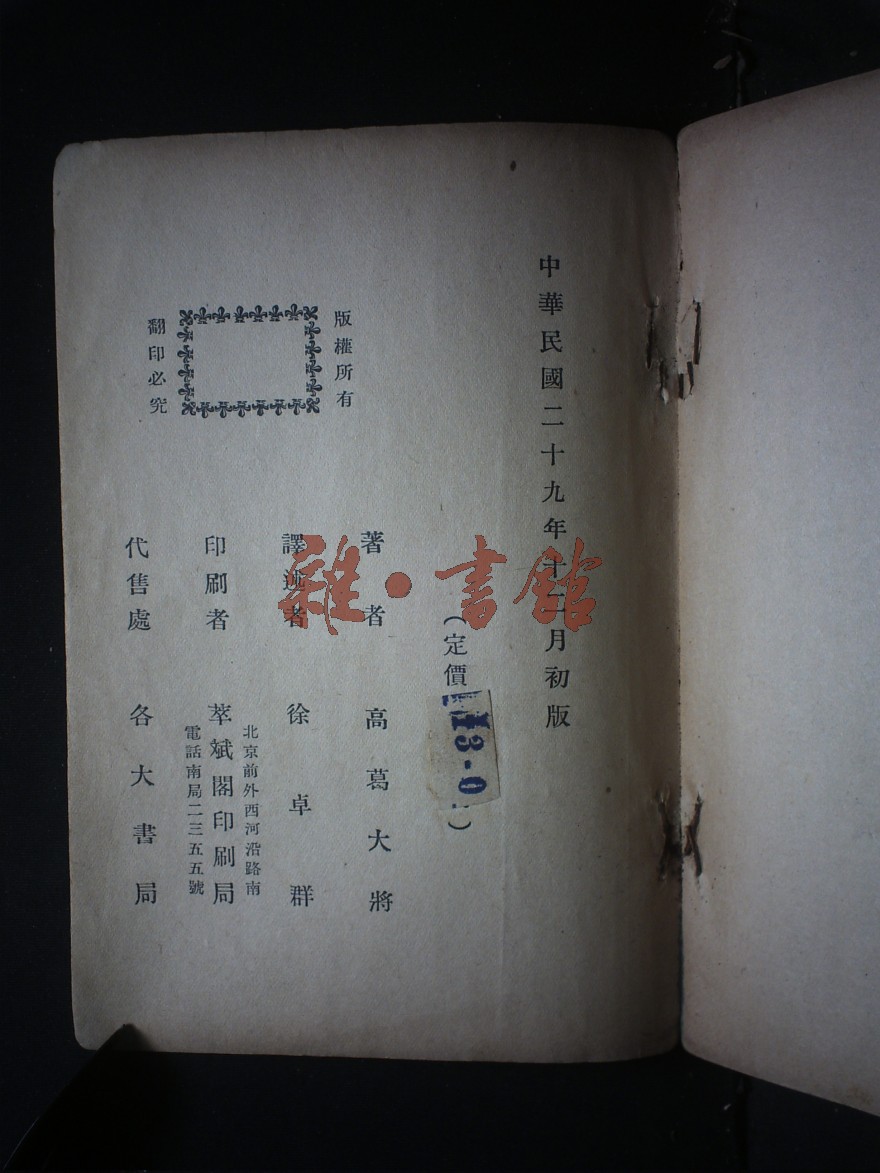 中華民國二十九年十二月初版
（定價 3-0）
著者 高葛大將
譯述者 徐卓群
北京前外西河沿路南
印刷者 萃斌閣印刷局
電話南局二三五五號
代售處 各大書局
版權所有
翻印必究
雜·書館